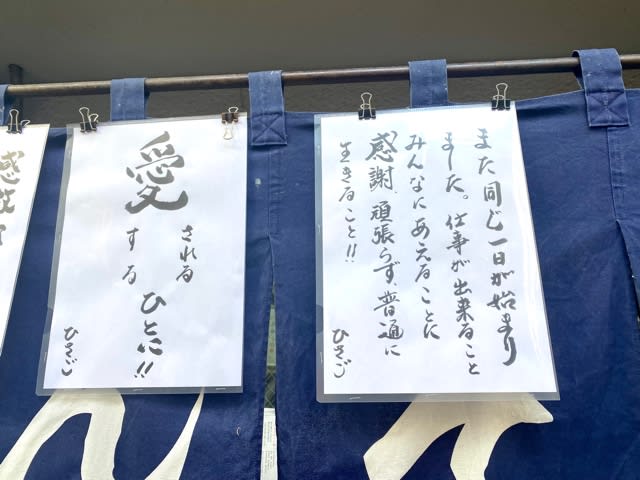 また同じ一日が始まり
ました。仕事が出来ること
みんなにあえることに
感謝、頑張らず、普通に
生きること!!
ひさご
愛
される
する
ひとに!!
ひさご
感